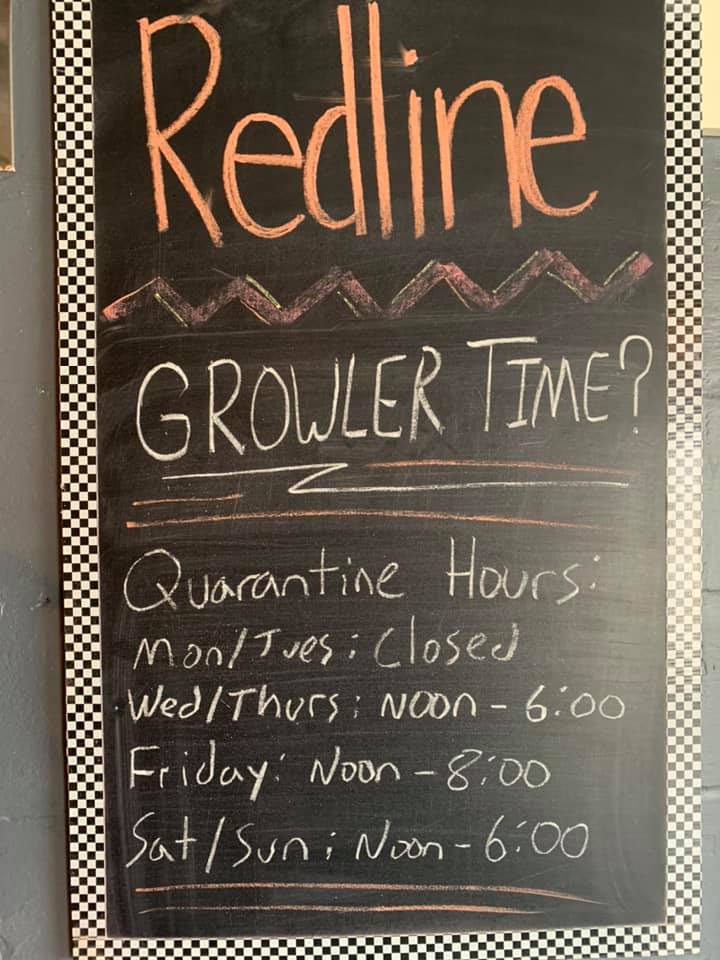 Redline
GROWLER TIME?
Quarantine Hours:
Mon/Tues: Closed
Wed/Thurs: Noon - 6:00
Friday: Noon - 8:00
Sat/Sun: Noon - 6:00